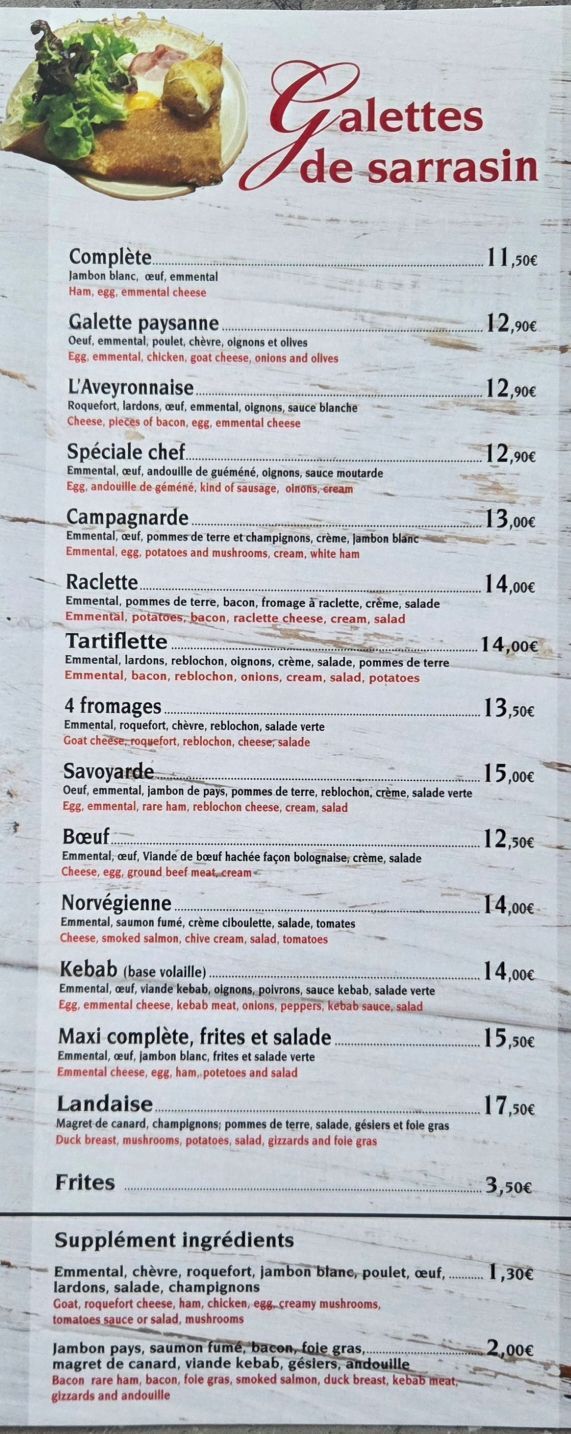 Galettes
de sarrasin
Complète 11,50€
Jambon blanc, œuf, emmental
Ham, egg, emmental cheese
Galette paysanne 12,90€
Oeuf, emmental, poulet, chèvre, oignons et olives
Egg, emmental, chicken, goat cheese, onions and olives
L'Aveyronnaise 12,90€
Roquefort, lardons, œuf, emmental, oignons, sauce blanche
Cheese, pieces of bacon, egg, emmental cheese
Spéciale chef 12,90€
Emmental, œuf, andouille de guéméné, oignons, sauce moutarde
Egg, andouille de géméné, kind of sausage, oinons, cream
Campagnarde 13,00€
Emmental, œuf, pommes de terre et champignons, crème, jambon blanc
Emmental, egg, potatoes and mushrooms, cream, white ham
Raclette 14,00€
Emmental, pommes de terre, bacon, fromage à raclette, crème, salade
Emmental, potatoes, bacon, raclette cheese, cream, salad
Tartiflette 14,00€
Emmental, lardons, reblochon, oignons, crème, salade, pommes de terre
Emmental, bacon, reblochon, onions, cream, salad, potatoes
4 fromages 13,50€
Emmental, roquefort, chèvre, reblochon, salade verte
Goat cheese, roquefort, reblochon, cheese, salade
Savoyarde 15,00€
Oeuf, emmental, jambon de pays, pommes de terre, reblochon, crème, salade verte
Egg, emmental, rare ham, reblochon cheese, cream, salad
Bœuf 12,50€
Emmental, œuf, Viande de bœuf hachée façon bolognaise, crème, salade
Cheese, egg, ground beef meat, cream
Norvégienne 14,00€
Emmental, saumon fumé, crème ciboulette, salade, tomates
Cheese, smoked salmon, chive cream, salad, tomatoes
Kebab (base volaille) 14,00€
Emmental, œuf, viande kebab, oignons, poivrons, sauce kebab, salade verte
Egg, emmental cheese, kebab meat, onions, peppers, kebab sauce, salad
Maxi complète, frites et salade 15,50€
Emmental, œuf, jambon blanc, frites et salade verte
Emmental cheese, egg, ham, potetoes and salad
Landaise 17,50€
Magret de canard, champignons, pommes de terre, salade, gésiers et foie gras
Duck breast, mushrooms, potatoes, salad, gizzards and foie gras
Frites 3,50€
Supplément ingrédients
Emmental, chèvre, roquefort, jambon blanc, poulet, œuf, 1,30€
lardons, salade, champignons
Goat, roquefort cheese, ham, chicken, egg, creamy mushrooms,
tomatoes sauce or salad, mushrooms
Jambon pays, saumon fumé, bacon, foie gras, 2,00€
magret de canard, viande kebab, gésiers, andouille
Bacon rare ham, bacon, foie gras, smoked salmon, duck breast, kebab meat,
gizzards and andouille